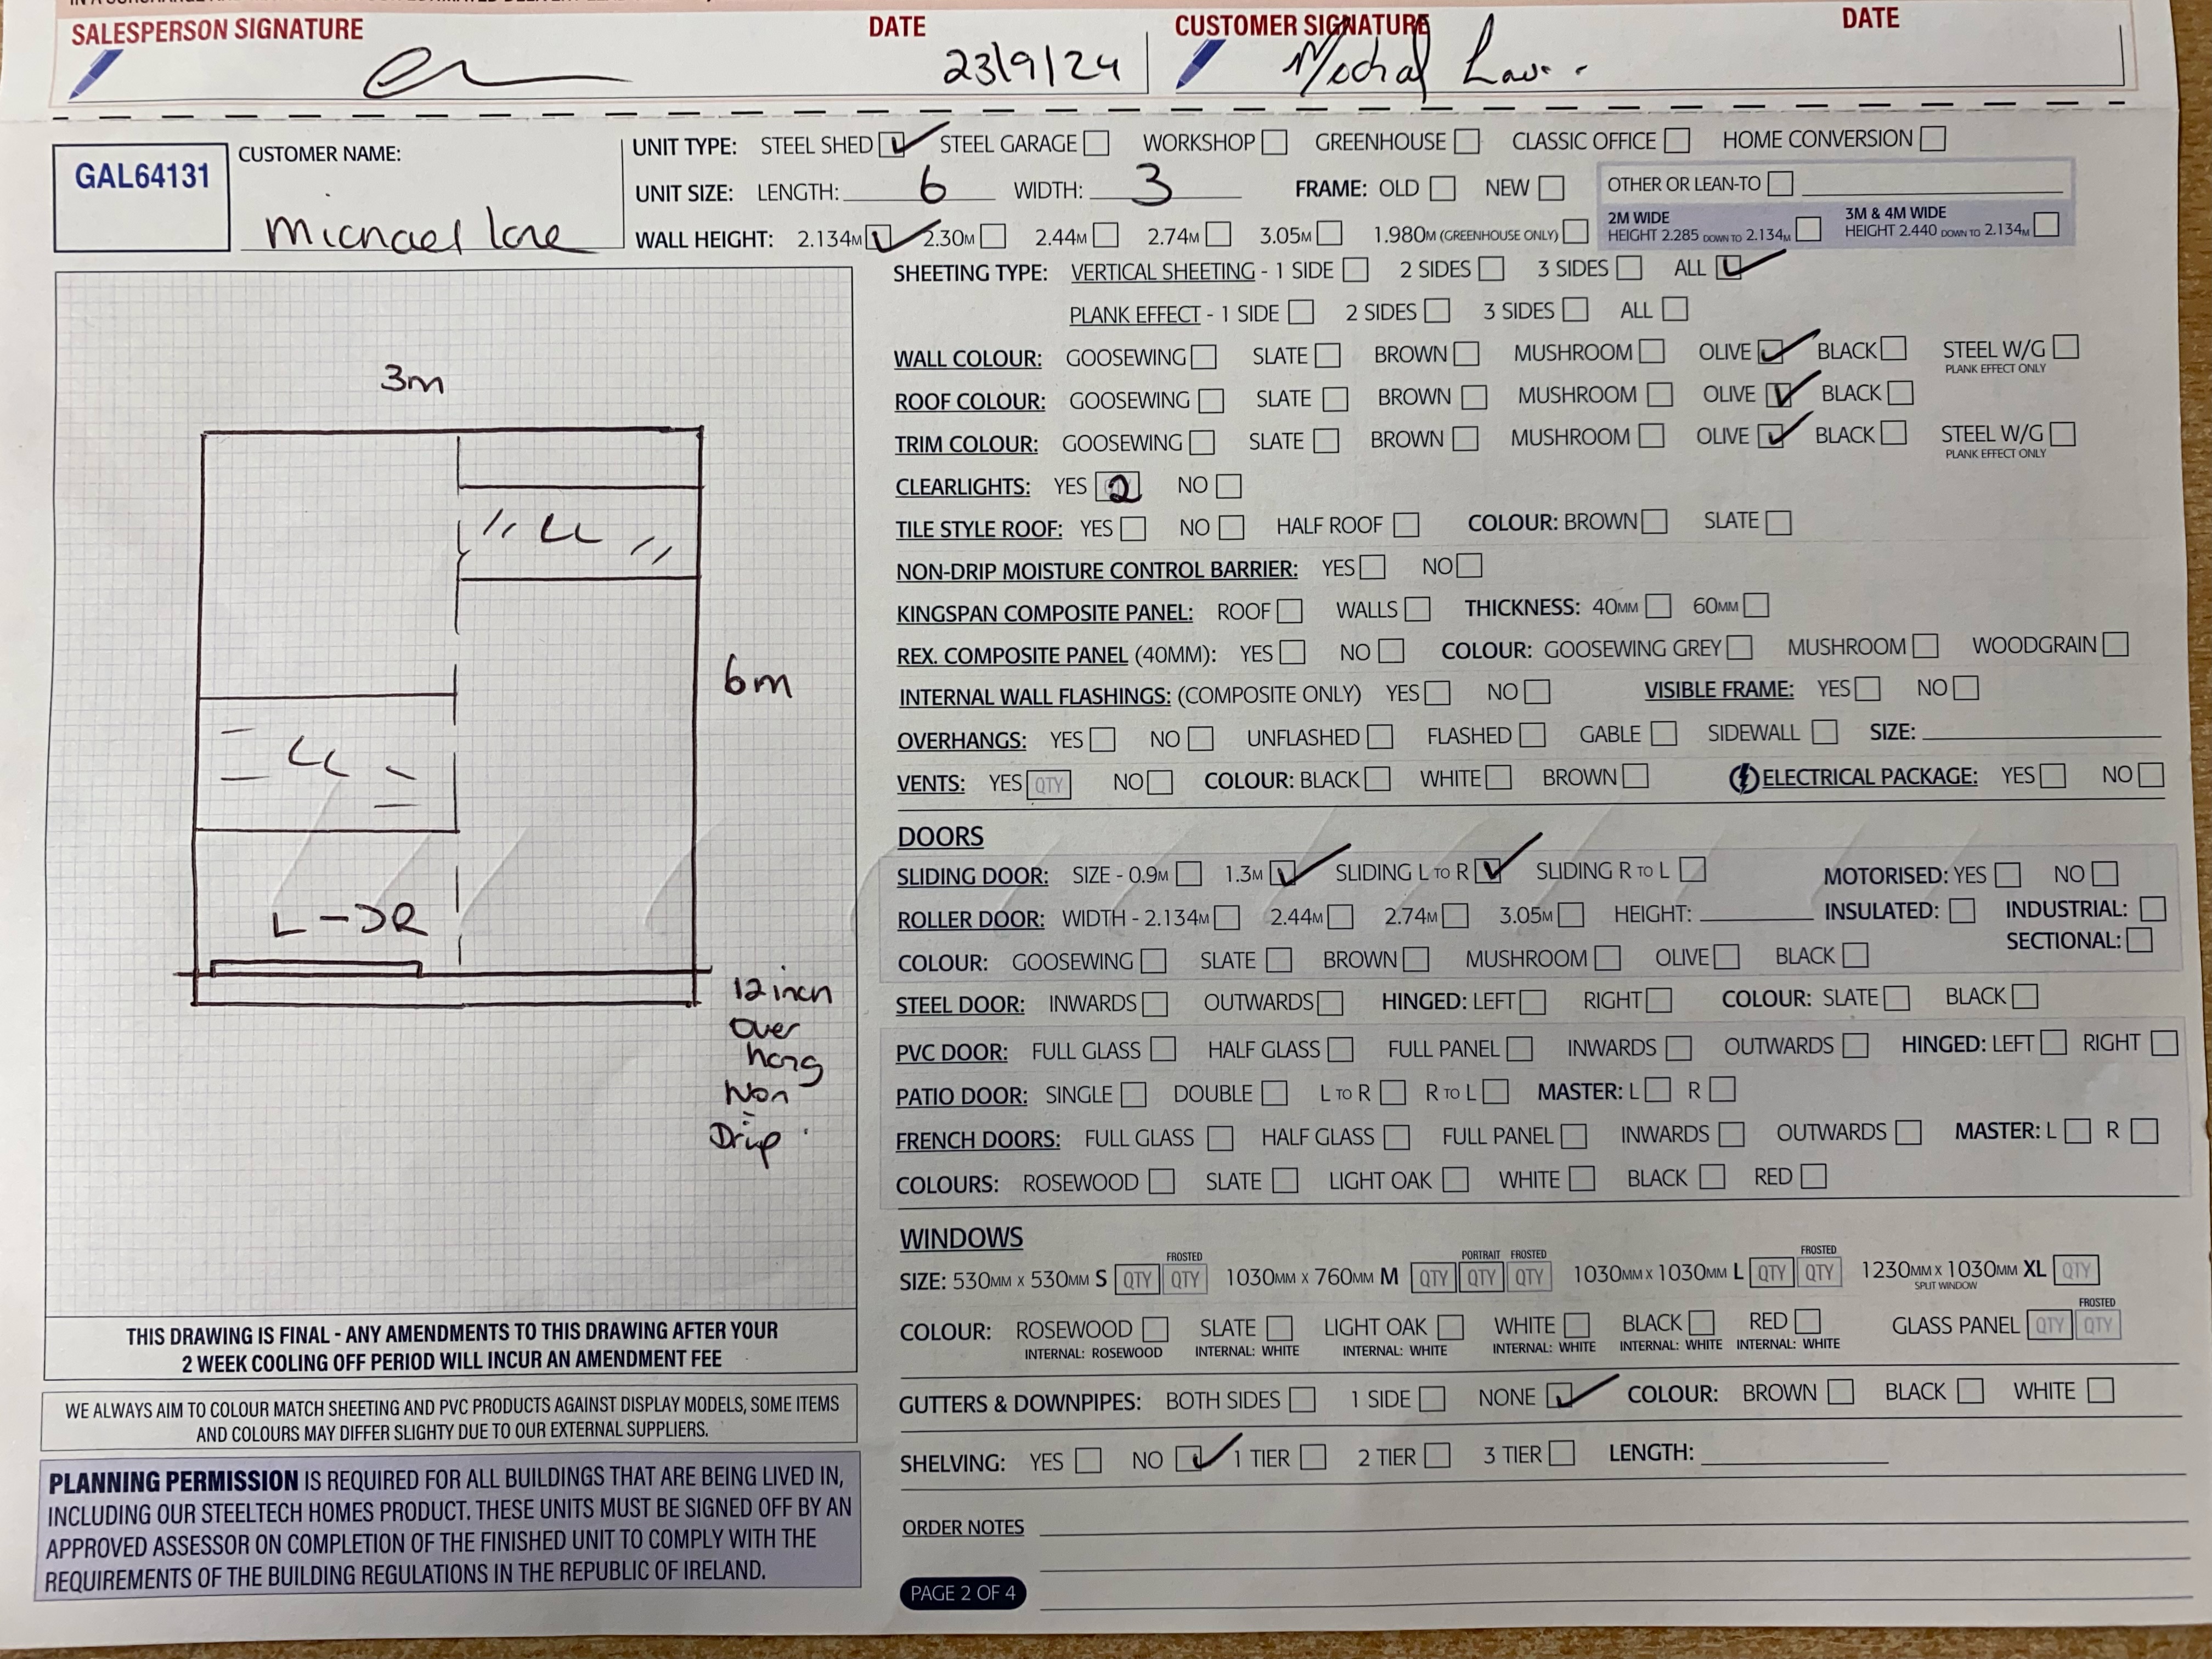 SALESPERSON SIGNATURE DATE CUSTOMER SIGNATURE DATE
23/9/24
GAL64131
CUSTOMER NAME:
Michael
UNIT TYPE: STEEL SHED STEEL GARAGE WORKSHOP GREENHOUSE CLASSIC OFFICE HOME CONVERSION
UNIT SIZE: LENGTH: 6 WIDTH: 3 FRAME: OLD NEW OTHER OR LEAN-TO
WALL HEIGHT: 2.134M 2.30M 2.44M 2.74M 3.05M 1.980M (GREENHOUSE ONLY)
2M WIDE
HEIGHT 2.285 DOWN TO 2.134M
3M & 4M WIDE
HEIGHT 2.440 DOWN TO 2.134M
3m
CC
6m
CC
L-DR
12 inch
Over
hang
Non
Drip
THIS DRAWING IS FINAL - ANY AMENDMENTS TO THIS DRAWING AFTER YOUR
2 WEEK COOLING OFF PERIOD WILL INCUR AN AMENDMENT FEE
WE ALWAYS AIM TO COLOUR MATCH SHEETING AND PVC PRODUCTS AGAINST DISPLAY MODELS, SOME ITEMS
AND COLOURS MAY DIFFER SLIGHTY DUE TO OUR EXTERNAL SUPPLIERS.
PLANNING PERMISSION IS REQUIRED FOR ALL BUILDINGS THAT ARE BEING LIVED IN,
INCLUDING OUR STEELTECH HOMES PRODUCT. THESE UNITS MUST BE SIGNED OFF BY AN
APPROVED ASSESSOR ON COMPLETION OF THE FINISHED UNIT TO COMPLY WITH THE
REQUIREMENTS OF THE BUILDING REGULATIONS IN THE REPUBLIC OF IRELAND.
SHEETING TYPE: VERTICAL SHEETING - 1 SIDE 2 SIDES 3 SIDES ALL
PLANK EFFECT - 1 SIDE 2 SIDES 3 SIDES ALL
WALL COLOUR: GOOSEWING SLATE BROWN MUSHROOM OLIVE BLACK STEEL W/G
PLANK EFFECT ONLY
ROOF COLOUR: GOOSEWING SLATE BROWN MUSHROOM OLIVE BLACK
TRIM COLOUR: GOOSEWING SLATE BROWN MUSHROOM OLIVE BLACK STEEL W/G
PLANK EFFECT ONLY
CLEARLIGHTS: YES 2 NO
TILE STYLE ROOF: YES NO HALF ROOF COLOUR: BROWN SLATE
NON-DRIP MOISTURE CONTROL BARRIER: YES NO
KINGSPAN COMPOSITE PANEL: ROOF WALLS THICKNESS: 40MM 60MM
REX. COMPOSITE PANEL (40MM): YES NO COLOUR: GOOSEWING GREY MUSHROOM WOODGRAIN
INTERNAL WALL FLASHINGS: (COMPOSITE ONLY) YES NO VISIBLE FRAME: YES NO
OVERHANGS: YES NO UNFLASHED FLASHED GABLE SIDEWALL SIZE:
VENTS: YES QTY NO COLOUR: BLACK WHITE BROWN ELECTRICAL PACKAGE: YES NO
DOORS
SLIDING DOOR: SIZE - 0.9M 1.3M SLIDING L TO R SLIDING R TO L MOTORISED: YES NO
ROLLER DOOR: WIDTH - 2.134M 2.44M 2.74M 3.05M HEIGHT: INSULATED: INDUSTRIAL:
SECTIONAL:
COLOUR: GOOSEWING SLATE BROWN MUSHROOM OLIVE BLACK
STEEL DOOR: INWARDS OUTWARDS HINGED: LEFT RIGHT COLOUR: SLATE BLACK
PVC DOOR: FULL GLASS HALF GLASS FULL PANEL INWARDS OUTWARDS HINGED: LEFT RIGHT
PATIO DOOR: SINGLE DOUBLE L TO R R TO L MASTER: L R
FRENCH DOORS: FULL GLASS HALF GLASS FULL PANEL INWARDS OUTWARDS MASTER: L R
COLOURS: ROSEWOOD SLATE LIGHT OAK WHITE BLACK RED
WINDOWS
FROSTED PORTRAIT FROSTED FROSTED
SIZE: 530MM X 530MM S QTY QTY 1030MM X 760MM M QTY QTY QTY 1030MM X 1030MM L QTY QTY 1230MM X 1030MM XL QTY
SPLIT WINDOW
FROSTED
COLOUR: ROSEWOOD SLATE LIGHT OAK WHITE BLACK RED GLASS PANEL QTY QTY
INTERNAL: ROSEWOOD INTERNAL: WHITE INTERNAL: WHITE INTERNAL: WHITE INTERNAL: WHITE INTERNAL: WHITE
GUTTERS & DOWNPIPES: BOTH SIDES 1 SIDE NONE COLOUR: BROWN BLACK WHITE
SHELVING: YES NO 1 TIER 2 TIER 3 TIER LENGTH:
ORDER NOTES
PAGE 2 OF 4